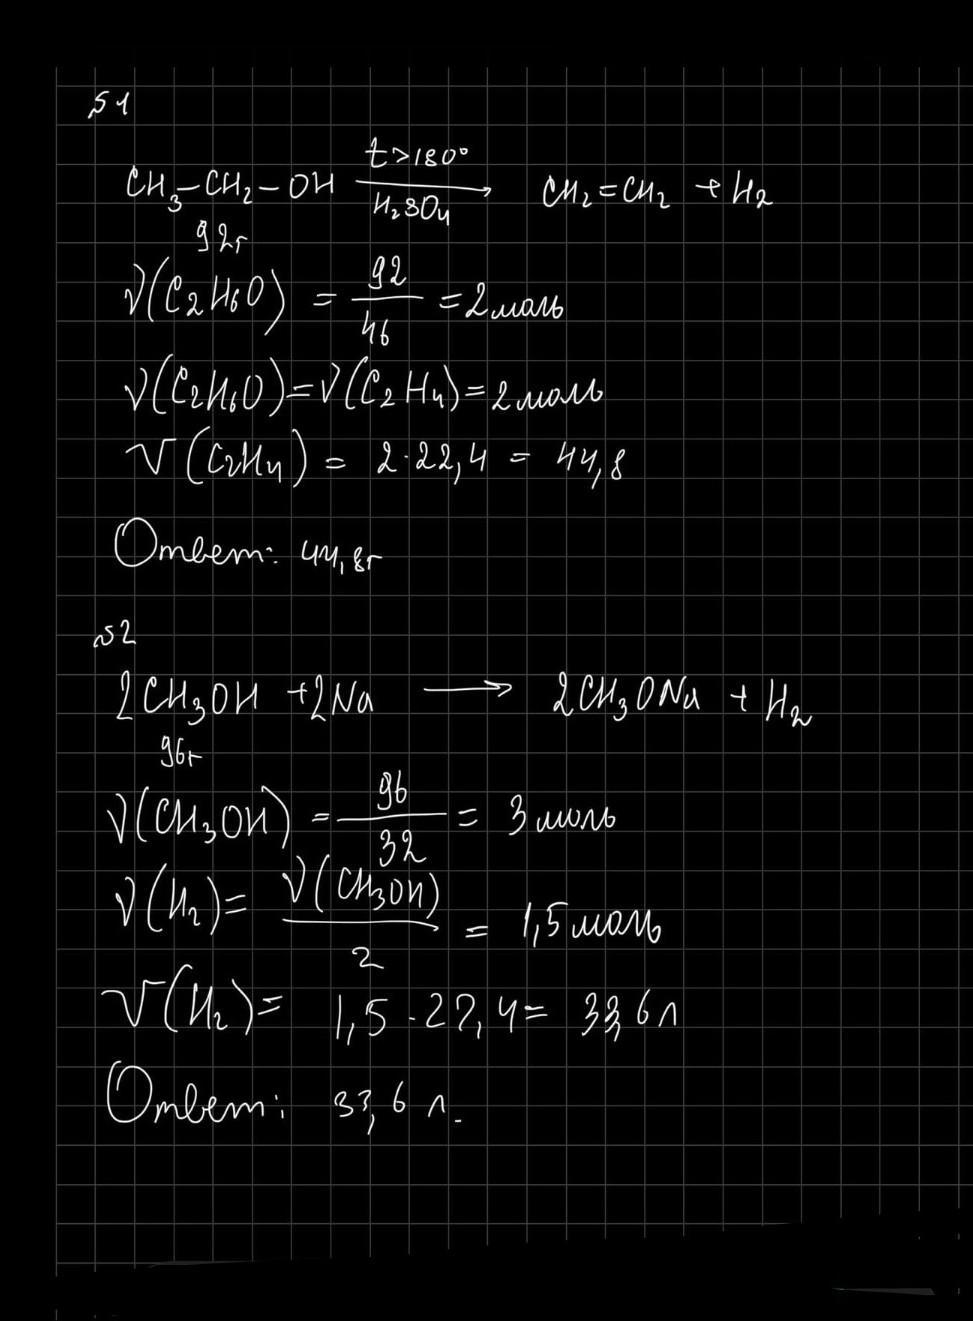 №1
t>180°
CH₃–CH₂–OH ⟶ CH₂=CH₂ + H₂
H₂SO₄
92г
ν(C₂H₆O) = 92/46 = 2 моль
ν(C₂H₆O) = ν(C₂H₄) = 2 моль
V(C₂H₄) = 2·22,4 = 44,8
Ответ: 44,8г
№2
2CH₃OH +2Na ⟶ 2CH₃ONa + H₂
96г
ν(CH₃OH) = 96/32 = 3 моль
ν(H₂) = ν(CH₃OH)/2 = 1,5 моль
V(H₂) = 1,5·22,4 = 33,6л
Ответ: 33,6 л.